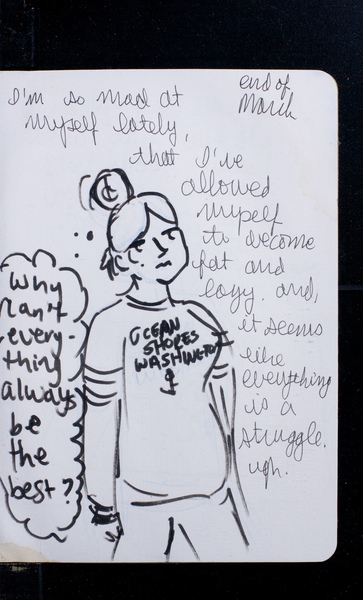 end of
March
I'm so mad at
myself lately,
that I've
allowed
myself
to become
fat and
lazy. and,
it seems
like
everything
is a
struggle.
ugh.
Why
can't
every-
thing
always
be
the
best?
OCEAN
SHORES
WASHINGTON